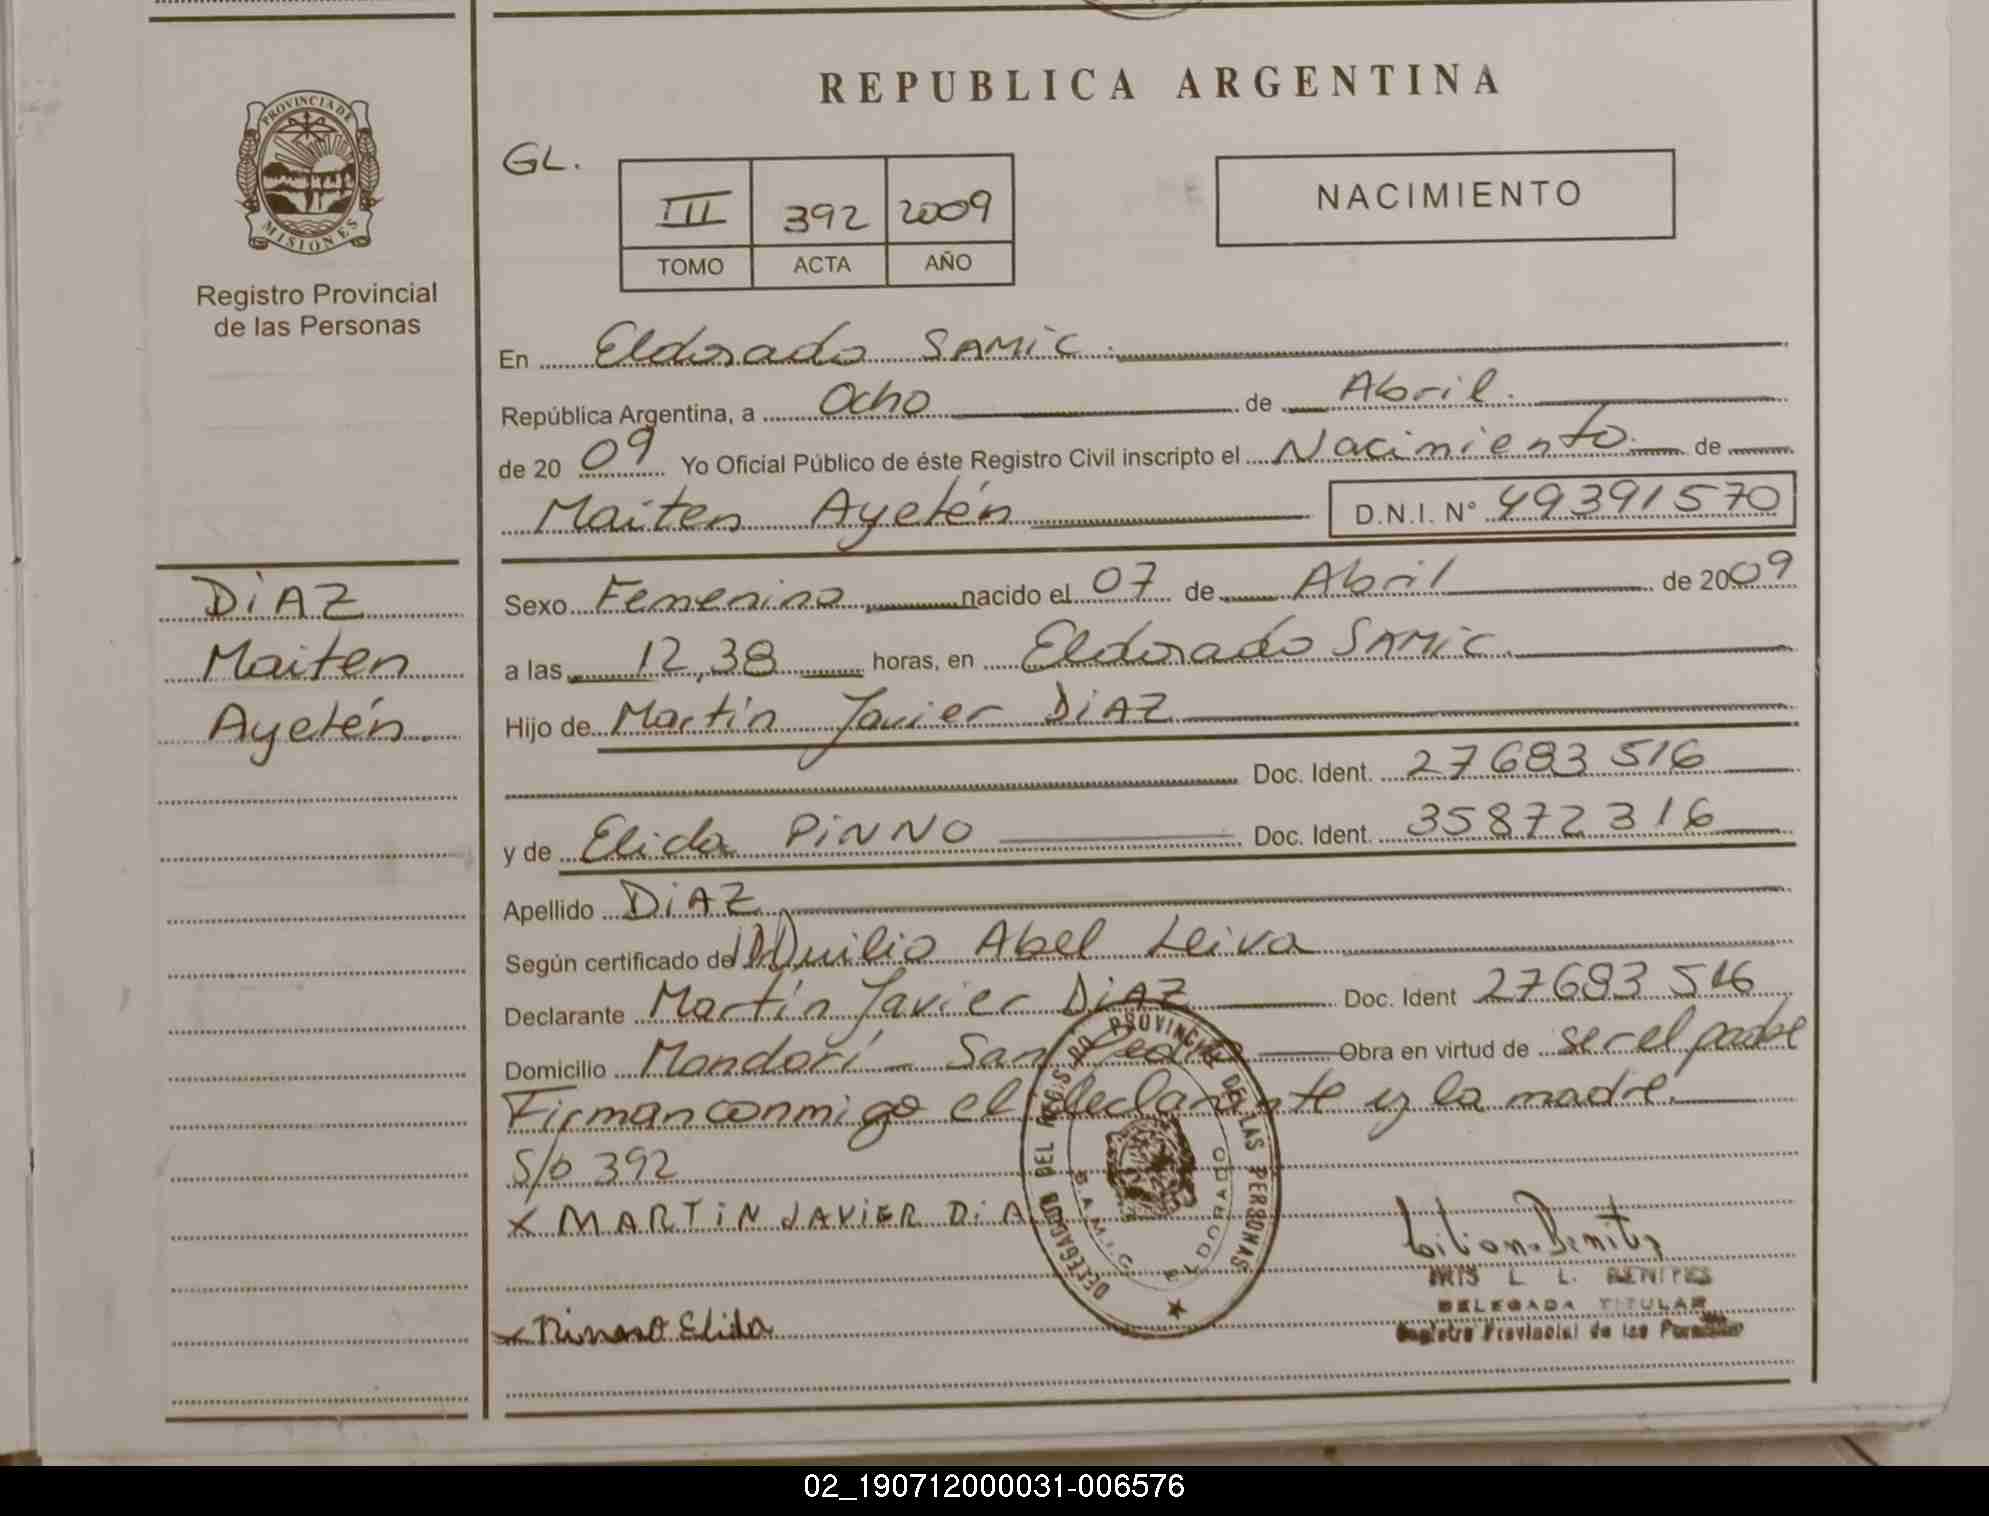 REPUBLICA ARGENTINA
PROVINCIA DE
MISIONES
Registro Provincial
de las Personas
GL.
III 392 2009
TOMO ACTA AÑO
NACIMIENTO
En Eldorado SAMiC.
República Argentina, a Ocho de Abril.
de 20 09 Yo Oficial Público de éste Registro Civil inscripto el Nacimiento de
Maiten Ayelén D.N.I. Nº 49391570
DiAZ
Maiten
Ayelén.
Sexo Femenino nacido el 07 de Abril de 2009
a las 12,38 horas, en Eldorado SAMiC.
Hijo de Martín Javier DiAZ
Doc. Ident. 27683516
y de Elida PiNNO Doc. Ident. 35872316
Apellido DiAZ
Según certificado de Duilio Abel Leiva
Declarante Martín Javier DiAZ Doc. Ident 27683516
Domicilio Mandorí - San Pedro Obra en virtud de ser el padre
Firman conmigo el declarante y la madre.
S/o 392
x MARTiN JAViER DiA
x Elida
DELEGACION DEL REGISTRO PROVINCIAL DE LAS PERSONAS
S.A.M.I.C. ELDORADO
L. L. BENITES
DELEGADA TITULAR
Registro Provincial de las Personas
02_190712000031-006576